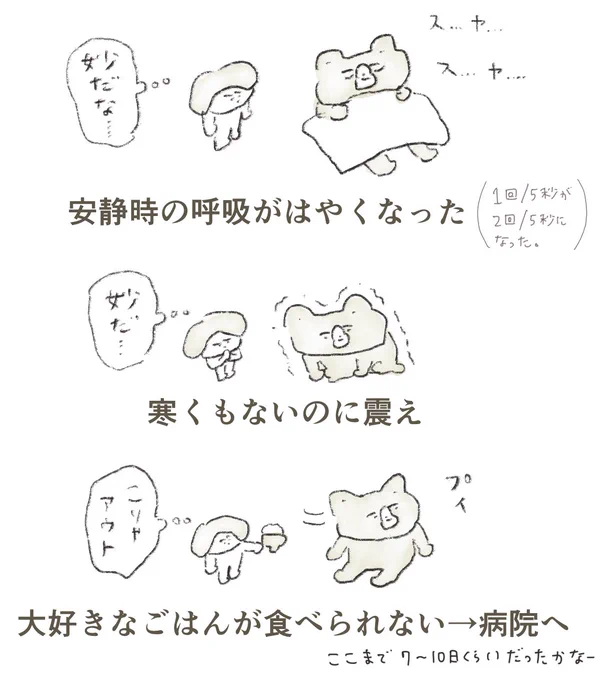 ス…ヤ…
ス…ヤ…
妙だな…
安静時の呼吸がはやくなった
(1回/5秒が
2回/5秒に
なった。)
妙だ…
寒くもないのに震え
こりゃ
アウト
プイ
大好きなごはんが食べられない→病院へ
ここまで7〜10日くらいだったかなー